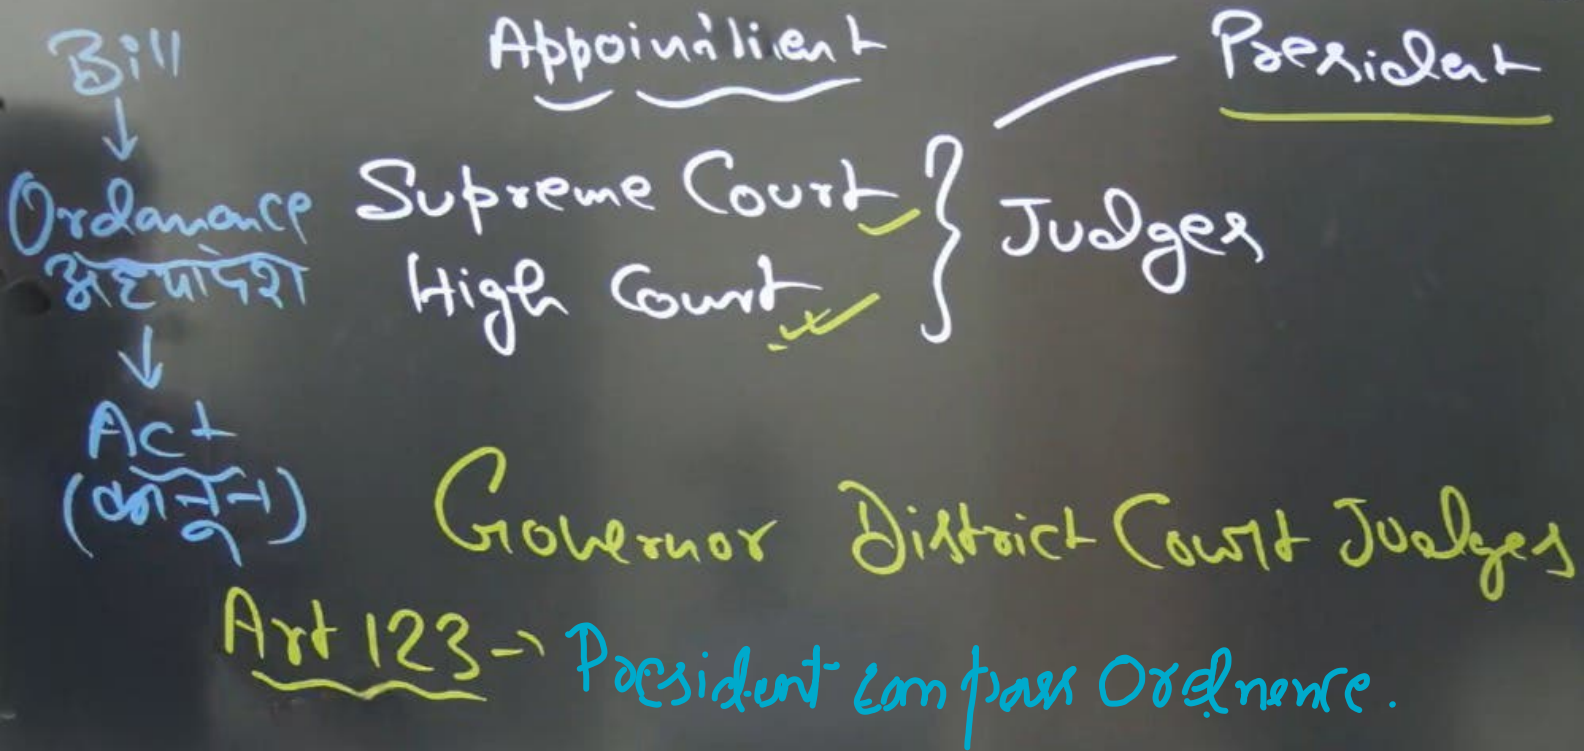 Bill
↓
Ordanance
अध्यादेश
↓
Act
(कानून)
Appointment
President
Supreme Court
High Court
} Judges
Governor District Court Judges
Art 123 → President can pass Ordnence.